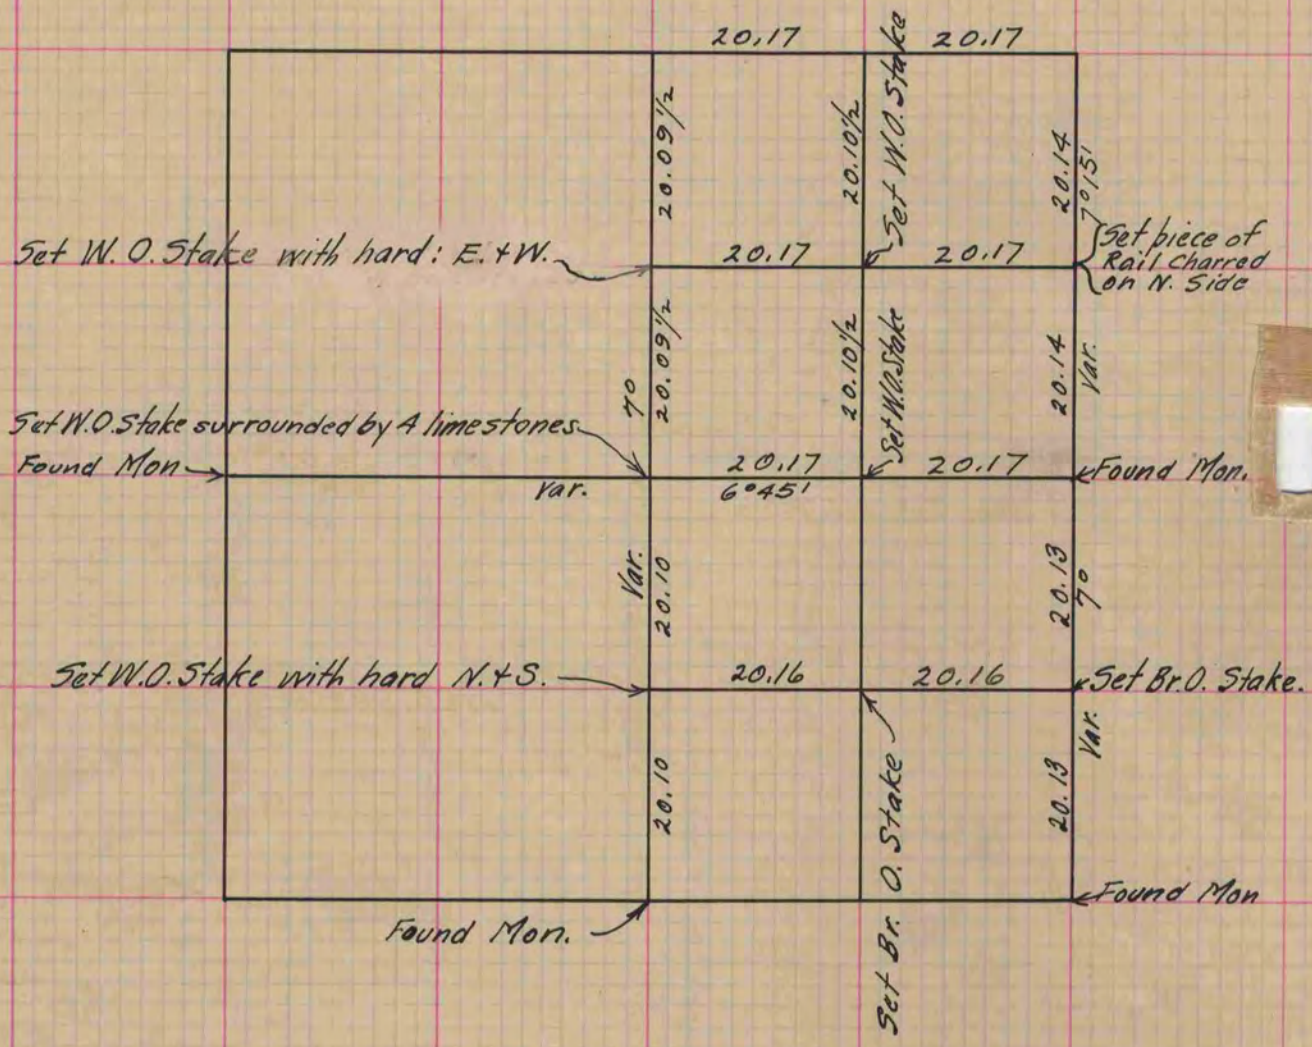 20.17 20.17
Set W.O. Stake
20.09 1/2
20.10 1/2
20.14
7°15'
Set W.O. Stake with hard: E. + W.
20.17 20.17
Set piece of
Rail Charred
on N. Side
20.09 1/2
20.10 1/2
Set W.O. Stake
20.14
Var.
7°
Set W.O. Stake surrounded by 4 limestones
Found Mon
20.17 20.17
Found Mon.
Var.
6°45'
Var.
20.10
20.13
7°
Set W.O. Stake with hard N. + S.
20.16 20.16
Set Br.O. Stake.
Var.
20.10
20.13
Set Br. O. Stake
Found Mon
Found Mon.